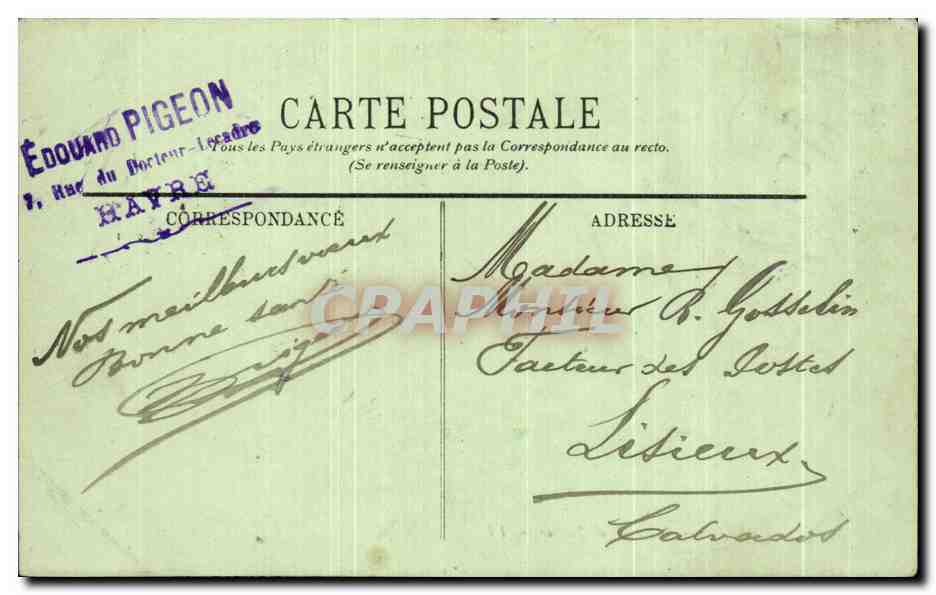 ÉDOUARD PIGEON
7, Rue du Docteur-Lecadre
HAVRE
CARTE POSTALE
Tous les Pays étrangers n'acceptent pas la Correspondance au recto.
(Se renseigner à la Poste).
CORRESPONDANCE
Nos meilleurs voeux
Bonne santé
Pigeon
ADRESSE
Madame
Monsieur R. Gosselin
Facteur des Postes
Lisieux
Calvados
CRAPHIL